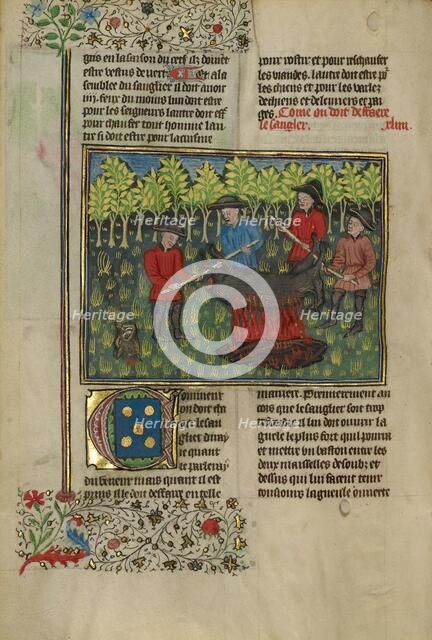 gris en la saison du cerf et doiuent
estre vestus de vert. Et a la
semblee du sanglier il doit auoir
.iiij. feux du moins lun doit estre
pour les seigneurs lautre doit estre
pour chaufer tout homme lau
tre si doit estre pour la cuisine
pour rostir et pour reschaufer
les viandes. lautre doit estre pour
les chiens et pour les varlez
de chiens et descuiers et pa
ges. Come on doit deffaere
le sanglier. .xliiij.
Heritage Heritage
Heritage Heritage
C
Heritage Heritage
Comment
on doit
le san
glier
quant
Heritage Heritage
du veneur mais quant il est
pris il le doit deffaire en telle
maniere. Premierement an
cois que le sanglier soit trop
lui doit ouurir la
guele le plus fort quil pourra
et mettre vn baston entre les
deux maisselles desoubz et
dessus qui lui facent tenir
tousiours la gueule ouuerte